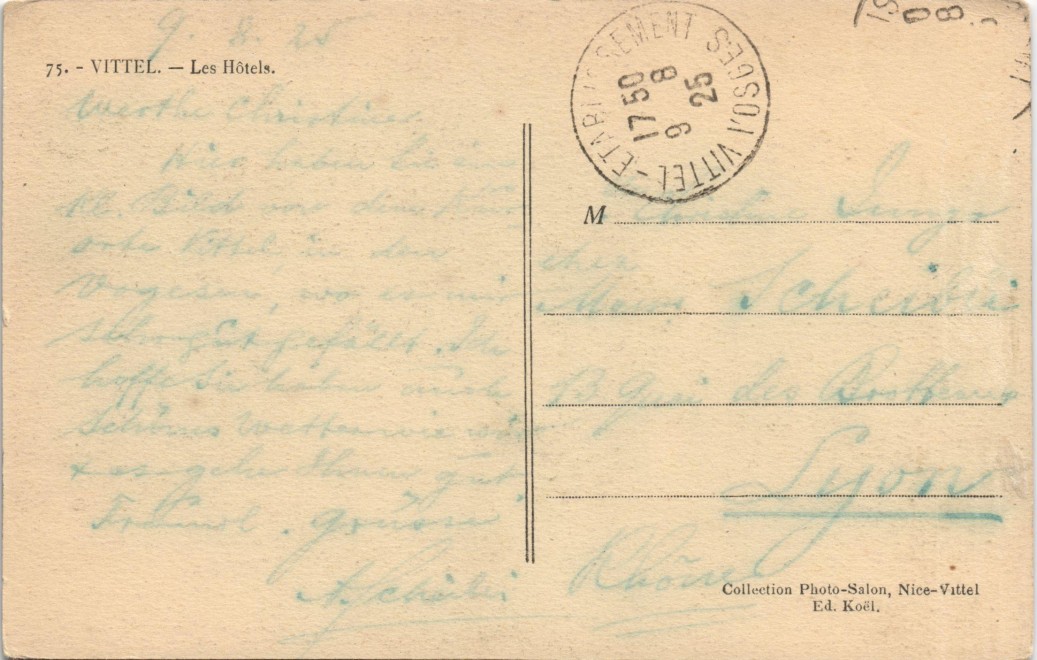 9. 8. 25
75. - VITTEL. — Les Hôtels.
Werthe Christine
Hier haben Sie ein
kl. Bild von dem Kur
orte Vittel in den
Vogesen, wo es mir
sehr gut gefällt. Ich
hoffe Sie haben auch
schönes Wetter wie wir
+ es gehe Ihnen gut
Freundl. Grüsse
A. Scheibli
VITTEL-ETABLISSEMENT VOSGES
17 50
9 8
25
M
chez
Mons. Scheibli
13 Quai des Brotteaux
Lyon
Rhône
Collection Photo-Salon, Nice-Vittel
Ed. Koël.